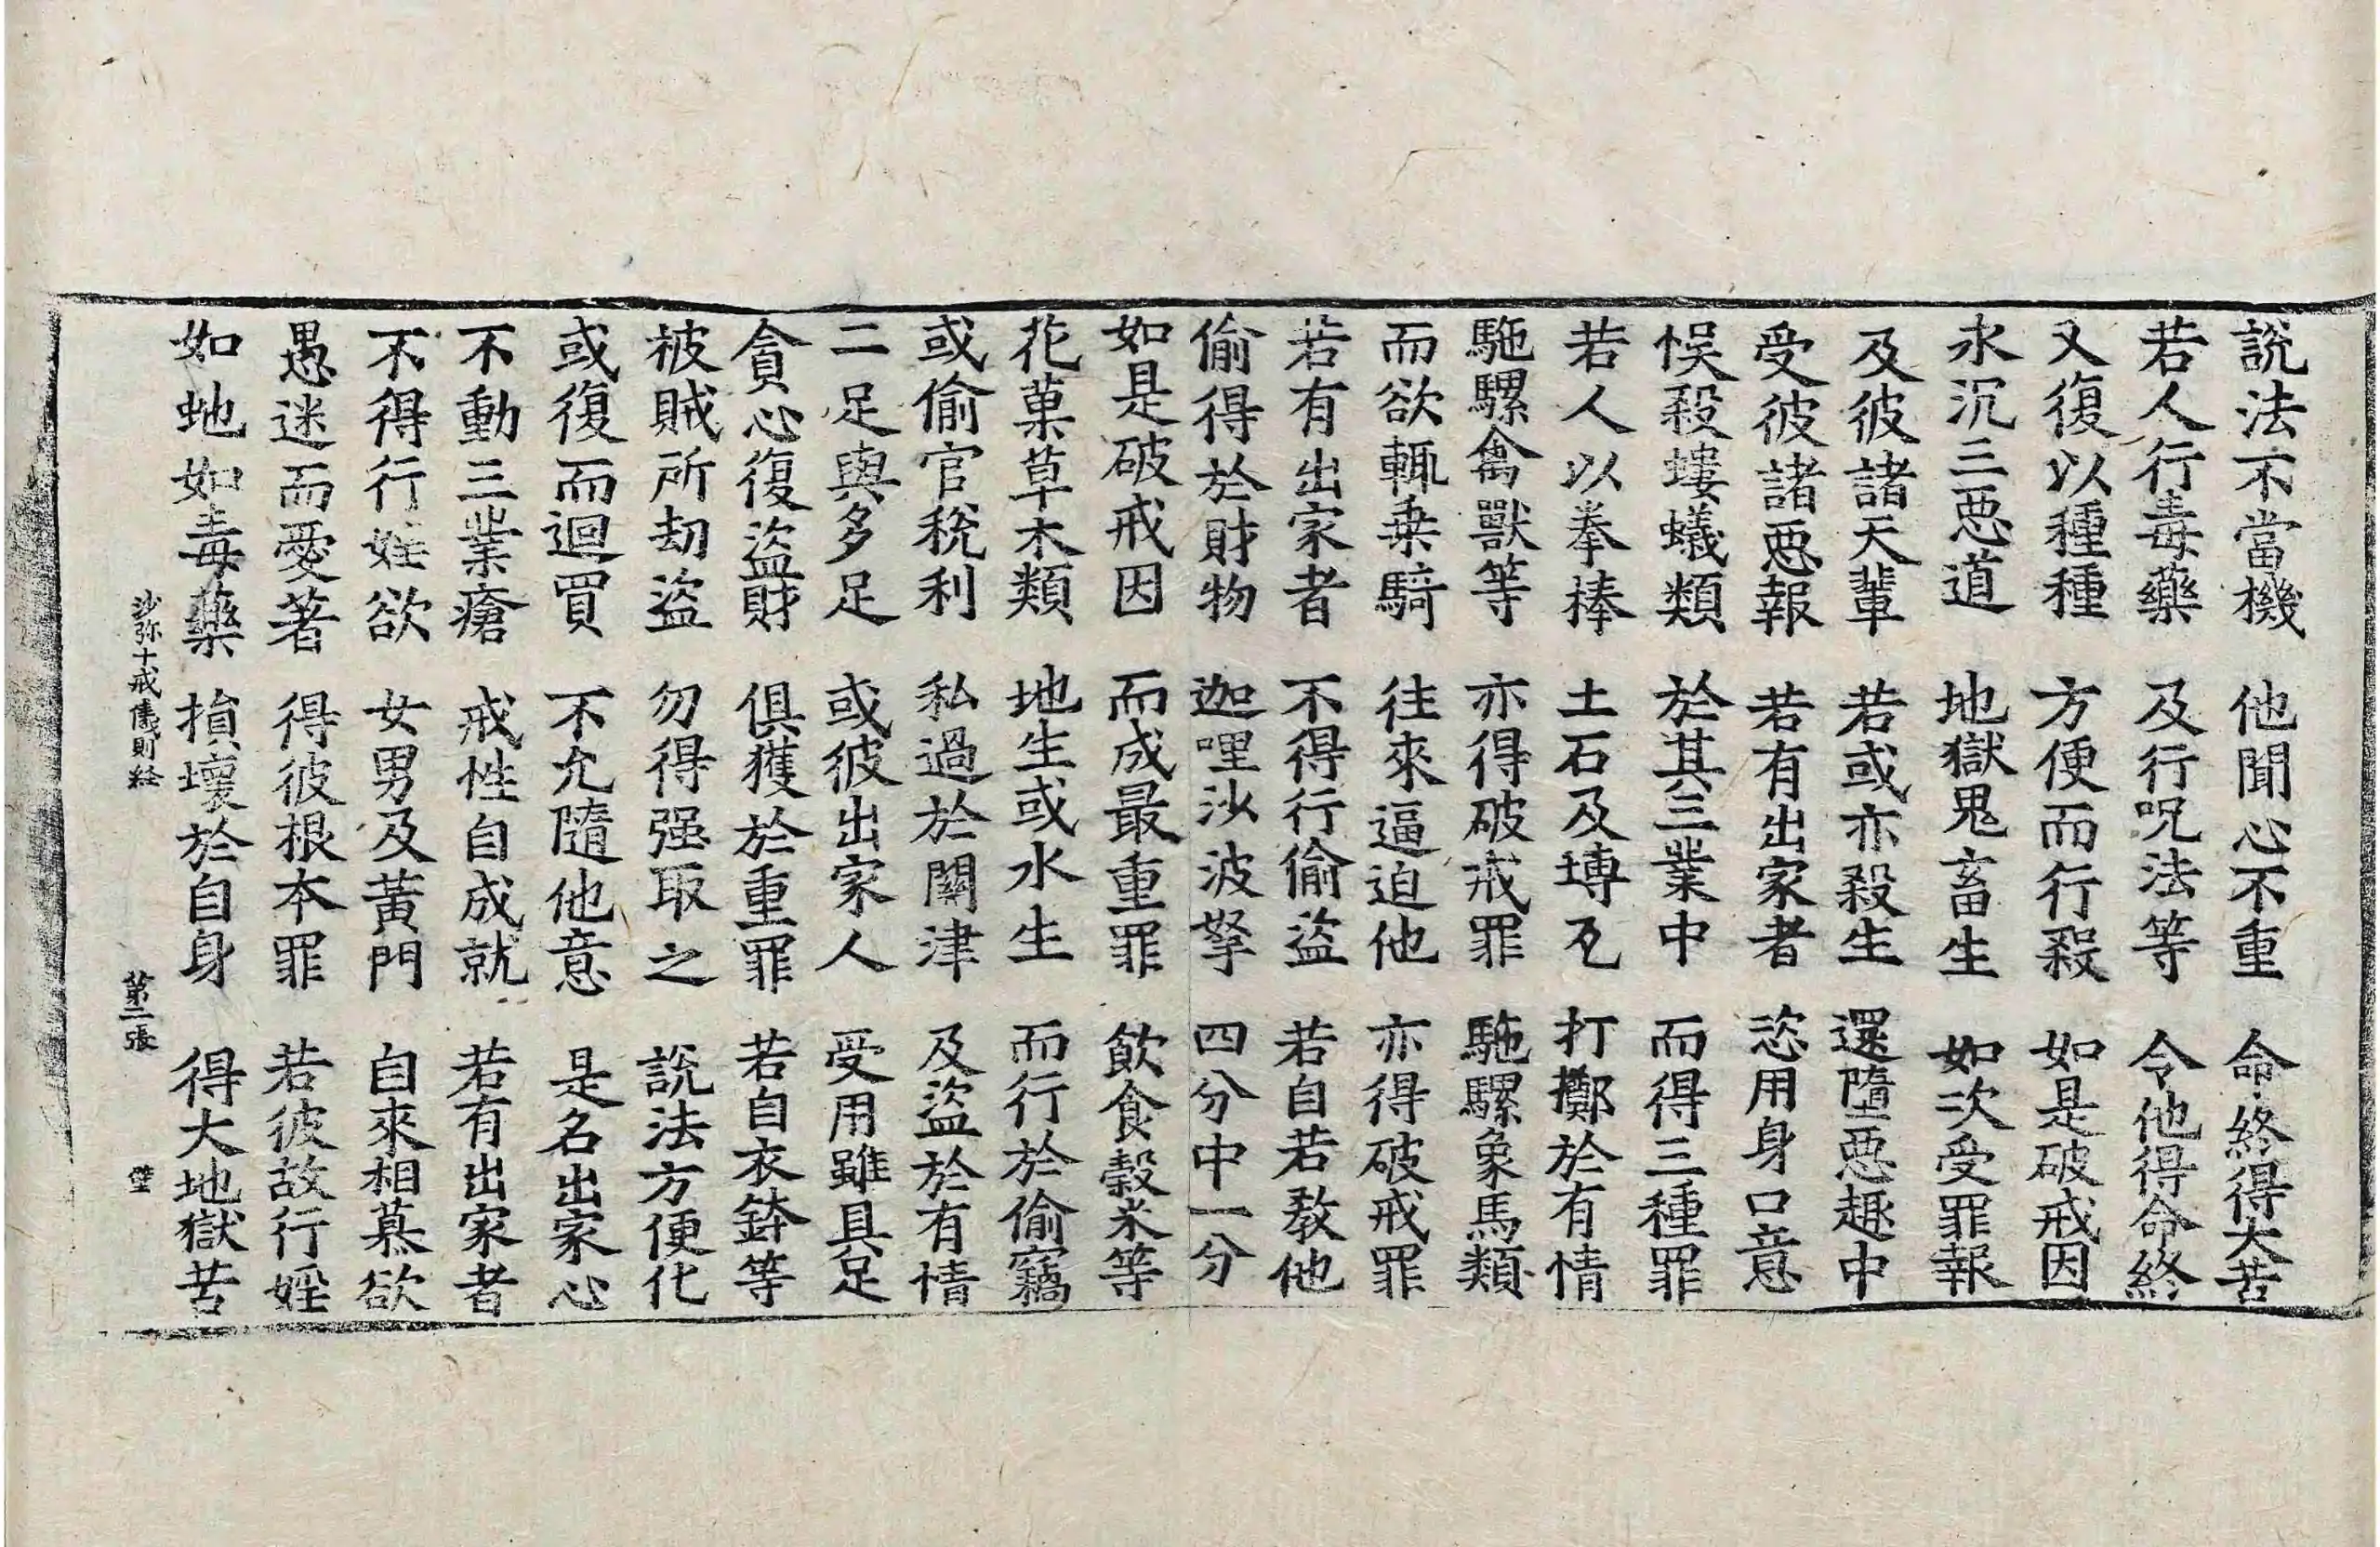 說法不當機　他聞心不重　命終得大苦
若人行毒藥　及行呪法等　令他得命終
又復以種種　方便而行殺　如是破戒因
永沉三惡道　地獄鬼畜生　如次受罪報
及彼諸天輩　若或亦殺生　還墮惡趣中
受彼諸惡報　若有出家者　恣用身口意
悮殺螻蟻類　於其三業中　而得三種罪
若人以拳棒　土石及塼瓦　打擲於有情
駞騾禽獸等　亦得破戒罪　駞騾象馬類
而欲輒乗騎　往來逼迫他　亦得破戒罪
若有出家者　不得行偷盜　若自若教他
偷得於財物　迦哩沙波拏　四分中一分
如是破戒因　而成最重罪　飲食穀米等
花菓草木類　地生或水生　而行於偷竊
或偷官稅利　私過於關津　及盜於有情
二足與多足　或彼出家人　受用雖具足
貪心復盜財　俱獲於重罪　若自衣鉢等
被賊所劫盜　勿得强取之　說法方便化
或復而迴買　不允隨他意　是名出家心
不動三業瘡　戒性自成就　若有出家者
不得行婬欲　女男及黃門　自來相慕欲
愚迷而愛著　得彼根本罪　若彼故行婬
如虵如毒藥　損壞於自身　得大地獄苦
沙弥十戒儀則経　第二張　壁